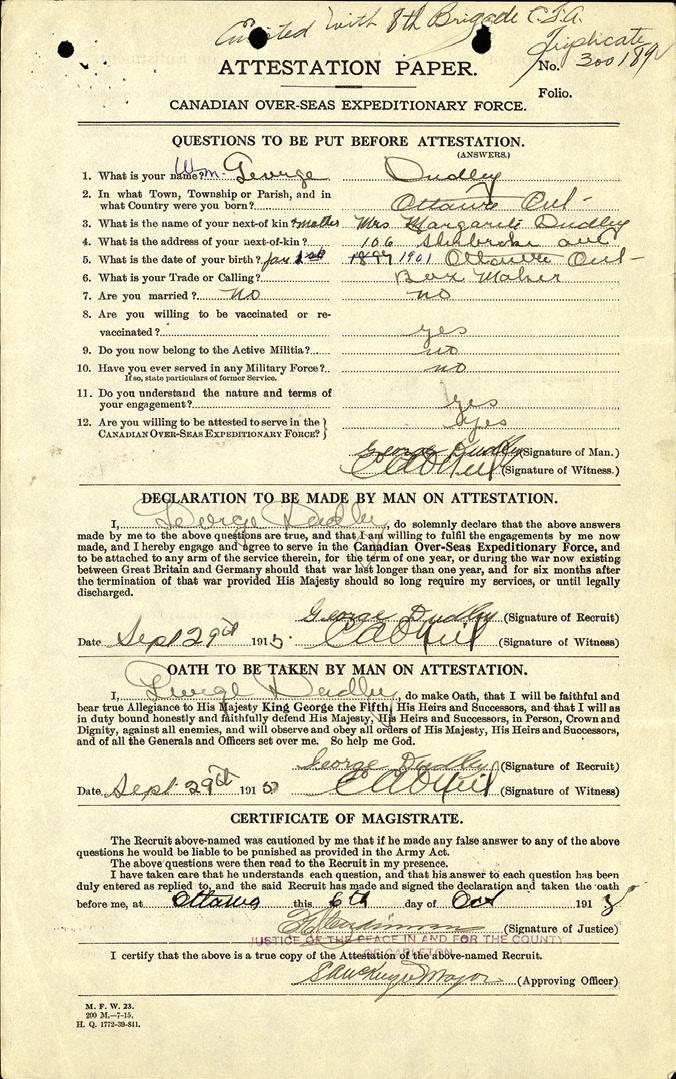 Enlisted with 8th Brigade C.F.A.
Triplicate
ATTESTATION PAPER.
No. 300189
Folio.
CANADIAN OVER-SEAS EXPEDITIONARY FORCE.
QUESTIONS TO BE PUT BEFORE ATTESTATION.
(ANSWERS.)
1. What is your name? Wm. George Dudley
2. In what Town, Township or Parish, and in
what Country were you born? Ottawa Ont-
3. What is the name of your next-of kin? mother Mrs Margarite Dudley
4. What is the address of your next-of-kin? 106
5. What is the date of your birth? Jan 1st 1897 1901 Ottawa Ont-
6. What is your Trade or Calling? Box Maker
7. Are you married? no no
8. Are you willing to be vaccinated or re-
vaccinated? yes
9. Do you now belong to the Active Militia? no
10. Have you ever served in any Military Force? no
If so, state particulars of former Service.
11. Do you understand the nature and terms of
your engagement? yes
12. Are you willing to be attested to serve in the
CANADIAN OVER-SEAS EXPEDITIONARY FORCE? yes
George Dudley (Signature of Man.)
(Signature of Witness.)
DECLARATION TO BE MADE BY MAN ON ATTESTATION.
I, George Dudley, do solemnly declare that the above answers
made by me to the above questions are true, and that I am willing to fulfil the engagements by me now
made, and I hereby engage and agree to serve in the Canadian Over-Seas Expeditionary Force, and
to be attached to any arm of the service therein, for the term of one year, or during the war now existing
between Great Britain and Germany should that war last longer than one year, and for six months after
the termination of that war provided His Majesty should so long require my services, or until legally
discharged.
George Dudley (Signature of Recruit)
Date Sept 29th 1915. (Signature of Witness)
OATH TO BE TAKEN BY MAN ON ATTESTATION.
I, George Dudley, do make Oath, that I will be faithful and
bear true Allegiance to His Majesty King George the Fifth, His Heirs and Successors, and that I will as
in duty bound honestly and faithfully defend His Majesty, His Heirs and Successors, in Person, Crown and
Dignity, against all enemies, and will observe and obey all orders of His Majesty, His Heirs and Successors,
and of all the Generals and Officers set over me. So help me God.
George Dudley (Signature of Recruit)
Date Sept 29th 1915 (Signature of Witness)
CERTIFICATE OF MAGISTRATE.
The Recruit above-named was cautioned by me that if he made any false answer to any of the above
questions he would be liable to be punished as provided in the Army Act.
The above questions were then read to the Recruit in my presence.
I have taken care that he understands each question, and that his answer to each question has been
duly entered as replied to, and the said Recruit has made and signed the declaration and taken the oath
before me, at Ottawa this 6th day of Oct 191
(Signature of Justice)
JUSTICE OF THE PEACE IN AND FOR THE COUNTY
OF CARLETON
I certify that the above is a true copy of the Attestation of the above-named Recruit.
Major (Approving Officer)
M. F. W. 23.
200 M.—7-15.
H. Q. 1772-39-841.